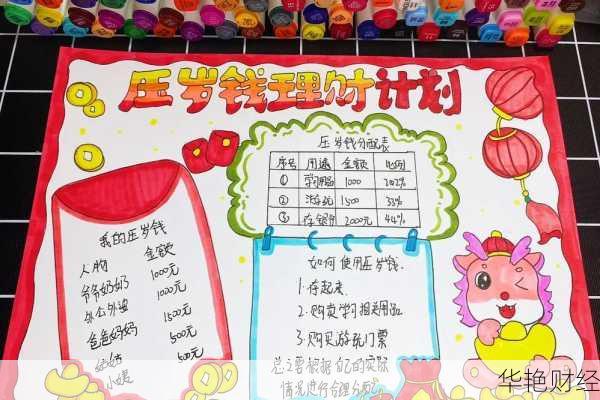 压岁钱理财计划
压岁钱分配表
序号 用途 金额
① 学习用品 1000
② 1500 33%
③ 存银行 2000元 44%
我的压岁钱
人物 金额
爷爷奶奶 1000元
外公外婆 1000元
爸爸妈妈 1500元
姑姑 500元
小姨 500元
如何使用压岁钱.
1.存起来.
2.购卖学习相关用品
3.购买游玩门票
总之要根据自己的实际
情况进行合理分配
华艳财经